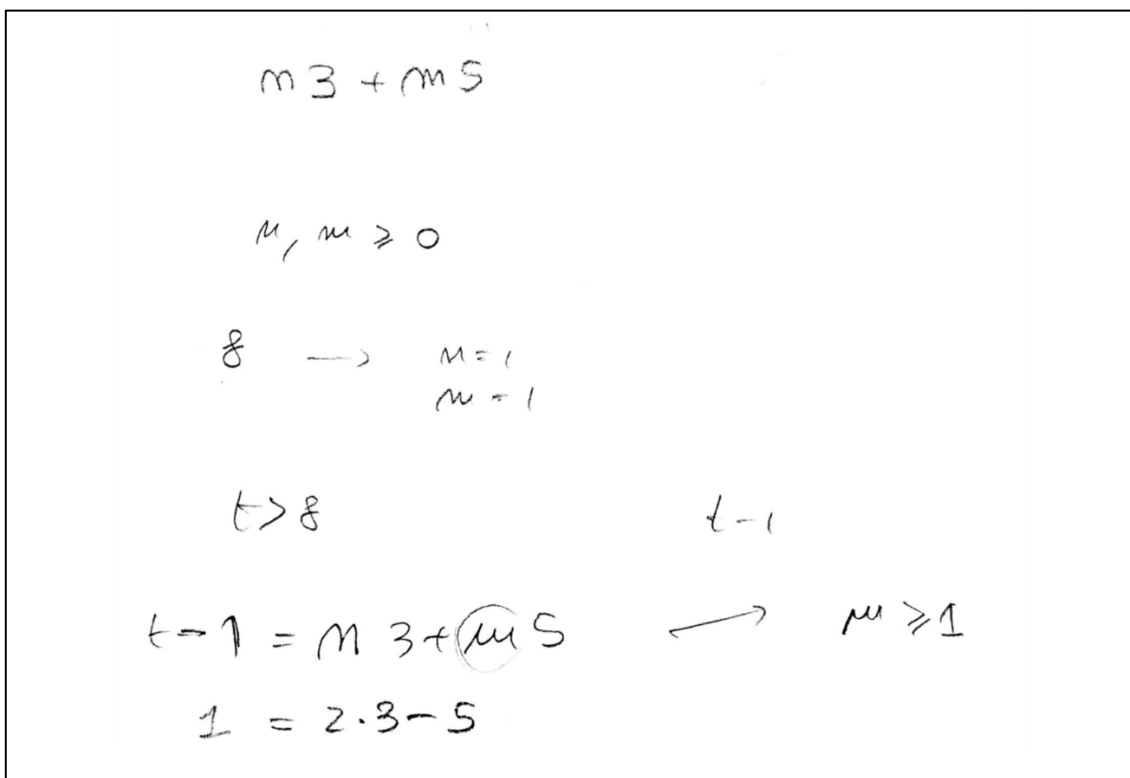 n3 + m5
n, m ≥ 0
8 → n = 1
m = 1
t > 8 t-1
t-1 = n3 + m5 → m ≥ 1
1 = 2·3-5